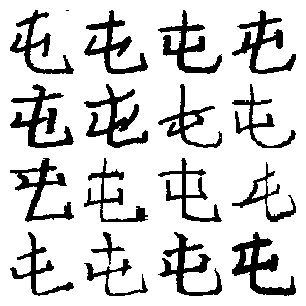 屯屯屯屯
屯屯屯屯
屯屯屯屯
屯屯屯屯